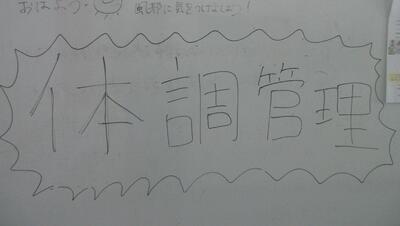 おはよう
風邪に気をつけましょう!
体調管理